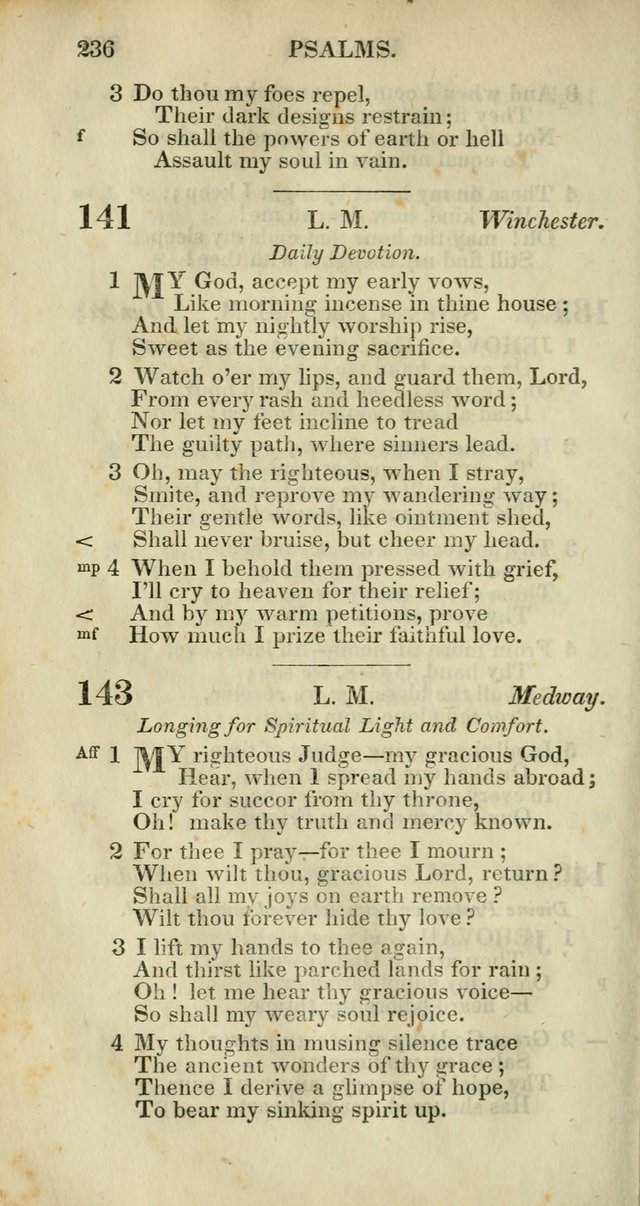 236 PSALMS.
3 Do thou my foes repel,
Their dark designs restrain;
f So shall the powers of earth or hell
Assault my soul in vain.
141 L. M. Winchester.
Daily Devotion.
1 MY God, accept my early vows,
Like morning incense in thine house;
And let my nightly worship rise,
Sweet as the evening sacrifice.
2 Watch o'er my lips, and guard them, Lord,
From every rash and heedless word;
Nor let my feet incline to tread
The guilty path, where sinners lead.
3 Oh, may the righteous, when I stray,
Smite, and reprove my wandering way;
Their gentle words, like ointment shed,
< Shall never bruise, but cheer my head.
mp 4 When I behold them pressed with grief,
I'll cry to heaven for their relief;
< And by my warm petitions, prove
mf How much I prize their faithful love.
143 L. M. Medway.
Longing for Spiritual Light and Comfort.
Aff 1 MY righteous Judge—my gracious God,
Hear, when I spread my hands abroad;
I cry for succor from thy throne,
Oh! make thy truth and mercy known.
2 For thee I pray—for thee I mourn;
When wilt thou, gracious Lord, return?
Shall all my joys on earth remove?
Wilt thou forever hide thy love?
3 I lift my hands to thee again,
And thirst like parched lands for rain;
Oh! let me hear thy gracious voice—
So shall my weary soul rejoice.
4 My thoughts in musing silence trace
The ancient wonders of thy grace;
Thence I derive a glimpse of hope,
To bear my sinking spirit up.